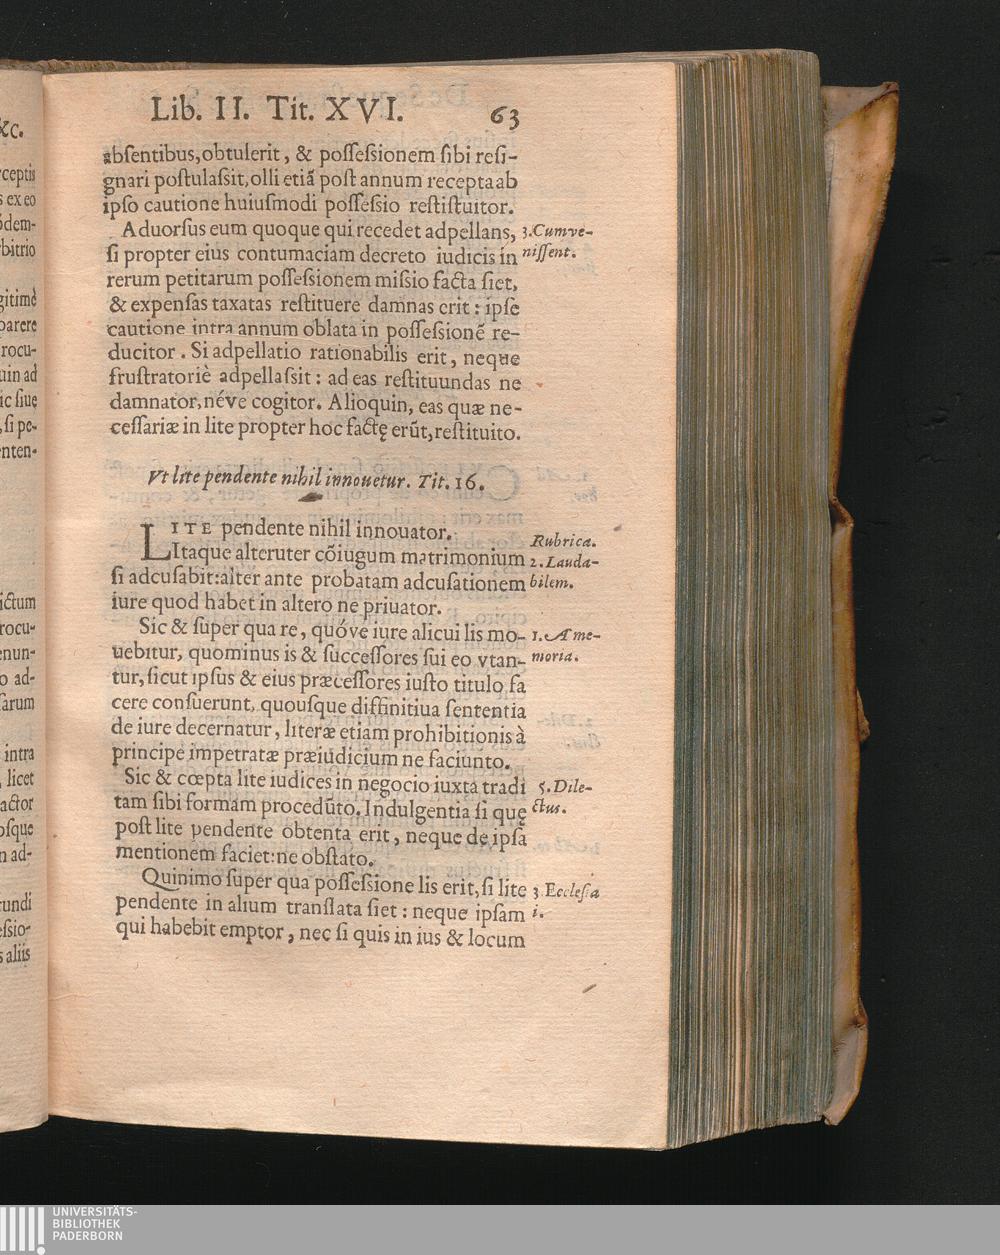 Lib. II. Tit. XVI. 63
absentibus, obtulerit, & possessionem sibi resi-
gnari postulassit, olli etiā post annum recepta ab
ipso cautione huiusmodi possessio restistuitor.
Aduorsus eum quoque qui recedet adpellans, 3. Cum ve-
si propter eius contumaciam decreto iudicis in nissent.
rerum petitarum possessionem missio facta siet,
& expensas taxatas restituere damnas erit : ipse
cautione intra annum oblata in possessionē re-
ducitor. Si adpellatio rationabilis erit, neque
frustratoriè adpellassit : ad eas restituundas ne
damnator, néve cogitor. Alioquin, eas quæ ne-
cessariæ in lite propter hoc factę erūt, restituito.
Vt lite pendente nihil innouetur. Tit. 16.
LITE pendente nihil innouator. Rubrica.
Itaque alteruter cōiugum matrimonium 2. Lauda-
si adcusabit: alter ante probatam adcusationem bilem.
iure quod habet in altero ne priuator.
Sic & super qua re, quóve iure alicui lis mo- 1. A me-
uebitur, quominus is & successores sui eo vtan- moria.
tur, sicut ipsus & eius præcessores iusto titulo fa
cere consuerunt, quousque diffinitiua sententia
de iure decernatur, literæ etiam prohibitionis à
principe impetratæ præiudicium ne faciunto.
Sic & cœpta lite iudices in negocio iuxta tradi 5. Dile-
tam sibi formam procedūto. Indulgentia si quę ctus.
post lite pendente obtenta erit, neque de ipsa
mentionem faciet: ne obstato.
Quinimo super qua possessione lis erit, si lite 3 Ecclesia
pendente in alium translata siet : neque ipsam i.
qui habebit emptor, nec si quis in ius & locum
&c.
ceptis
s ex eo
ódem-
bitrio
gitimè
parere
rocu-
uin ad
ic siuę
, si pe-
nten-
ictum
rocu-
enun-
o ad-
sarum
intra
, licet
actor
osque
n ad-
undi
essio-
s aliis
UNIVERSITÄTS-
BIBLIOTHEK
PADERBORN